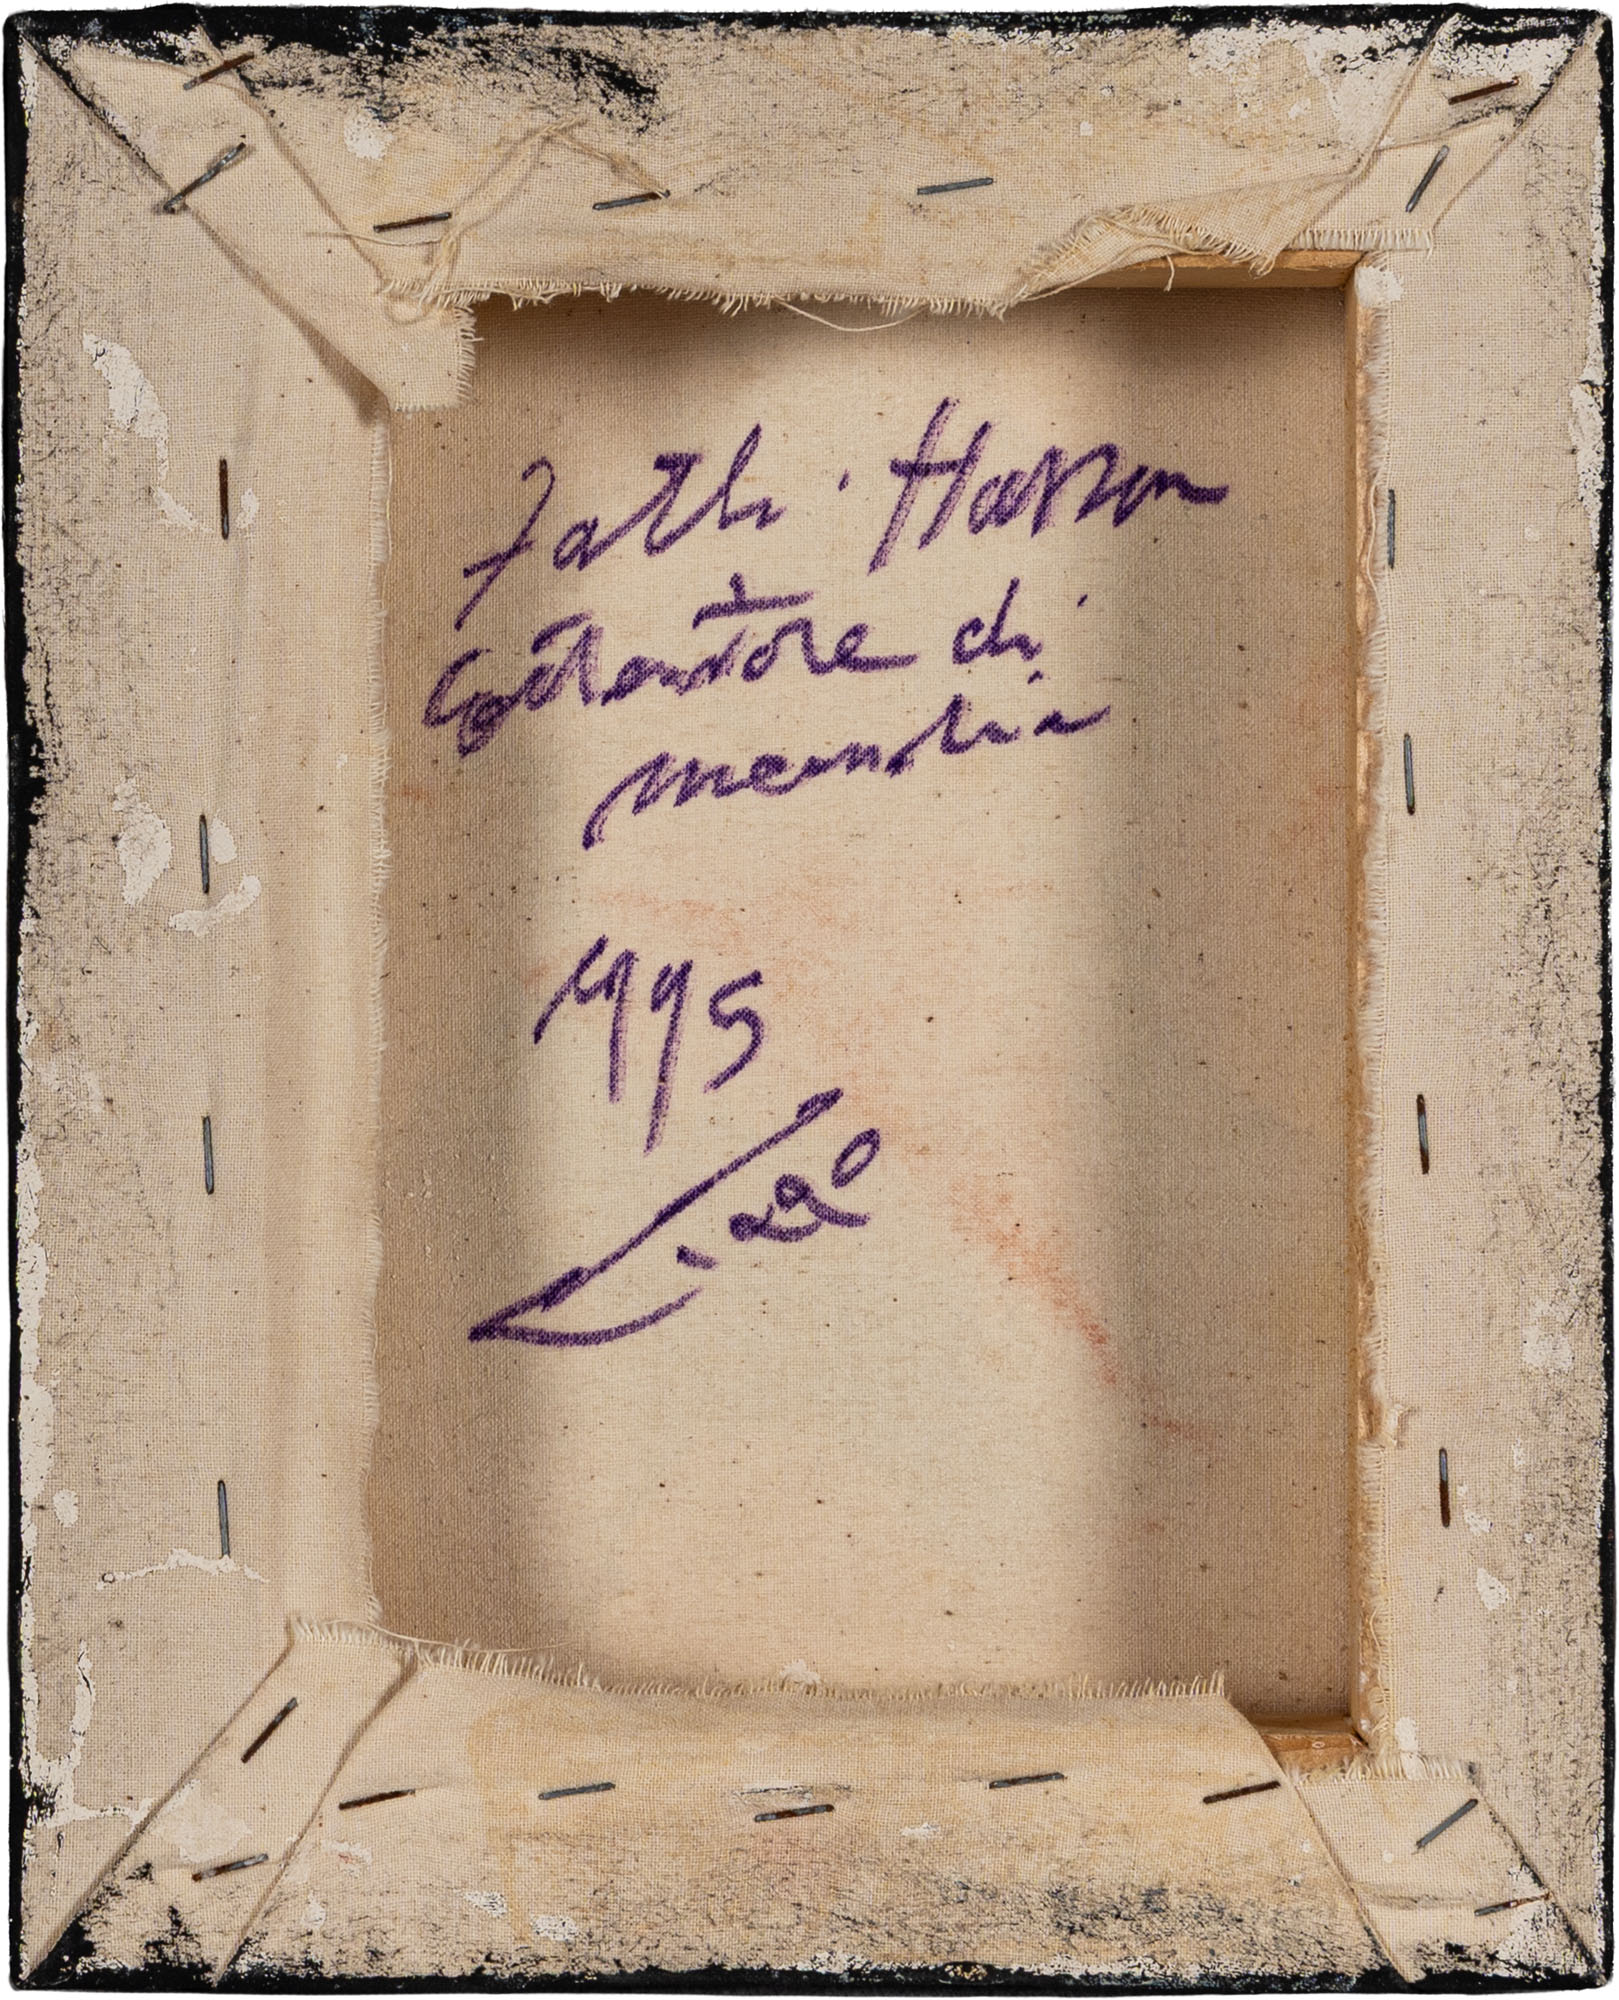 Fathi Hassan
Contenitore di
memoria
1995